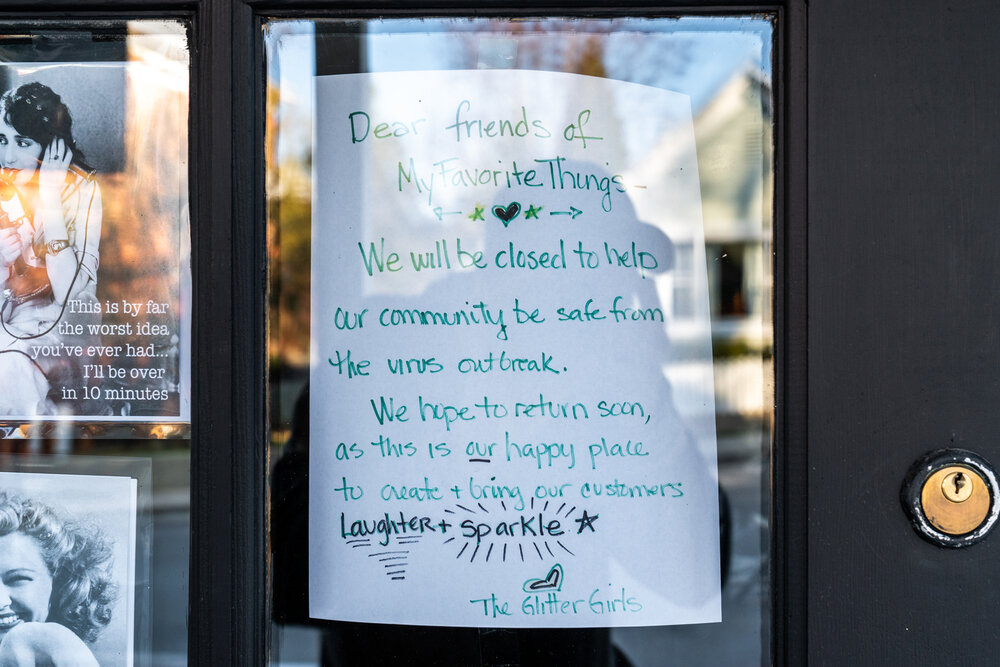 Dear friends of
My Favorite Things -
We will be closed to help
our community be safe from
the virus outbreak.
We hope to return soon,
as this is our happy place
to create + bring our customers
Laughter + sparkle
The Glitter Girls
This is by far
the worst idea
you've ever had...
I'll be over
in 10 minutes